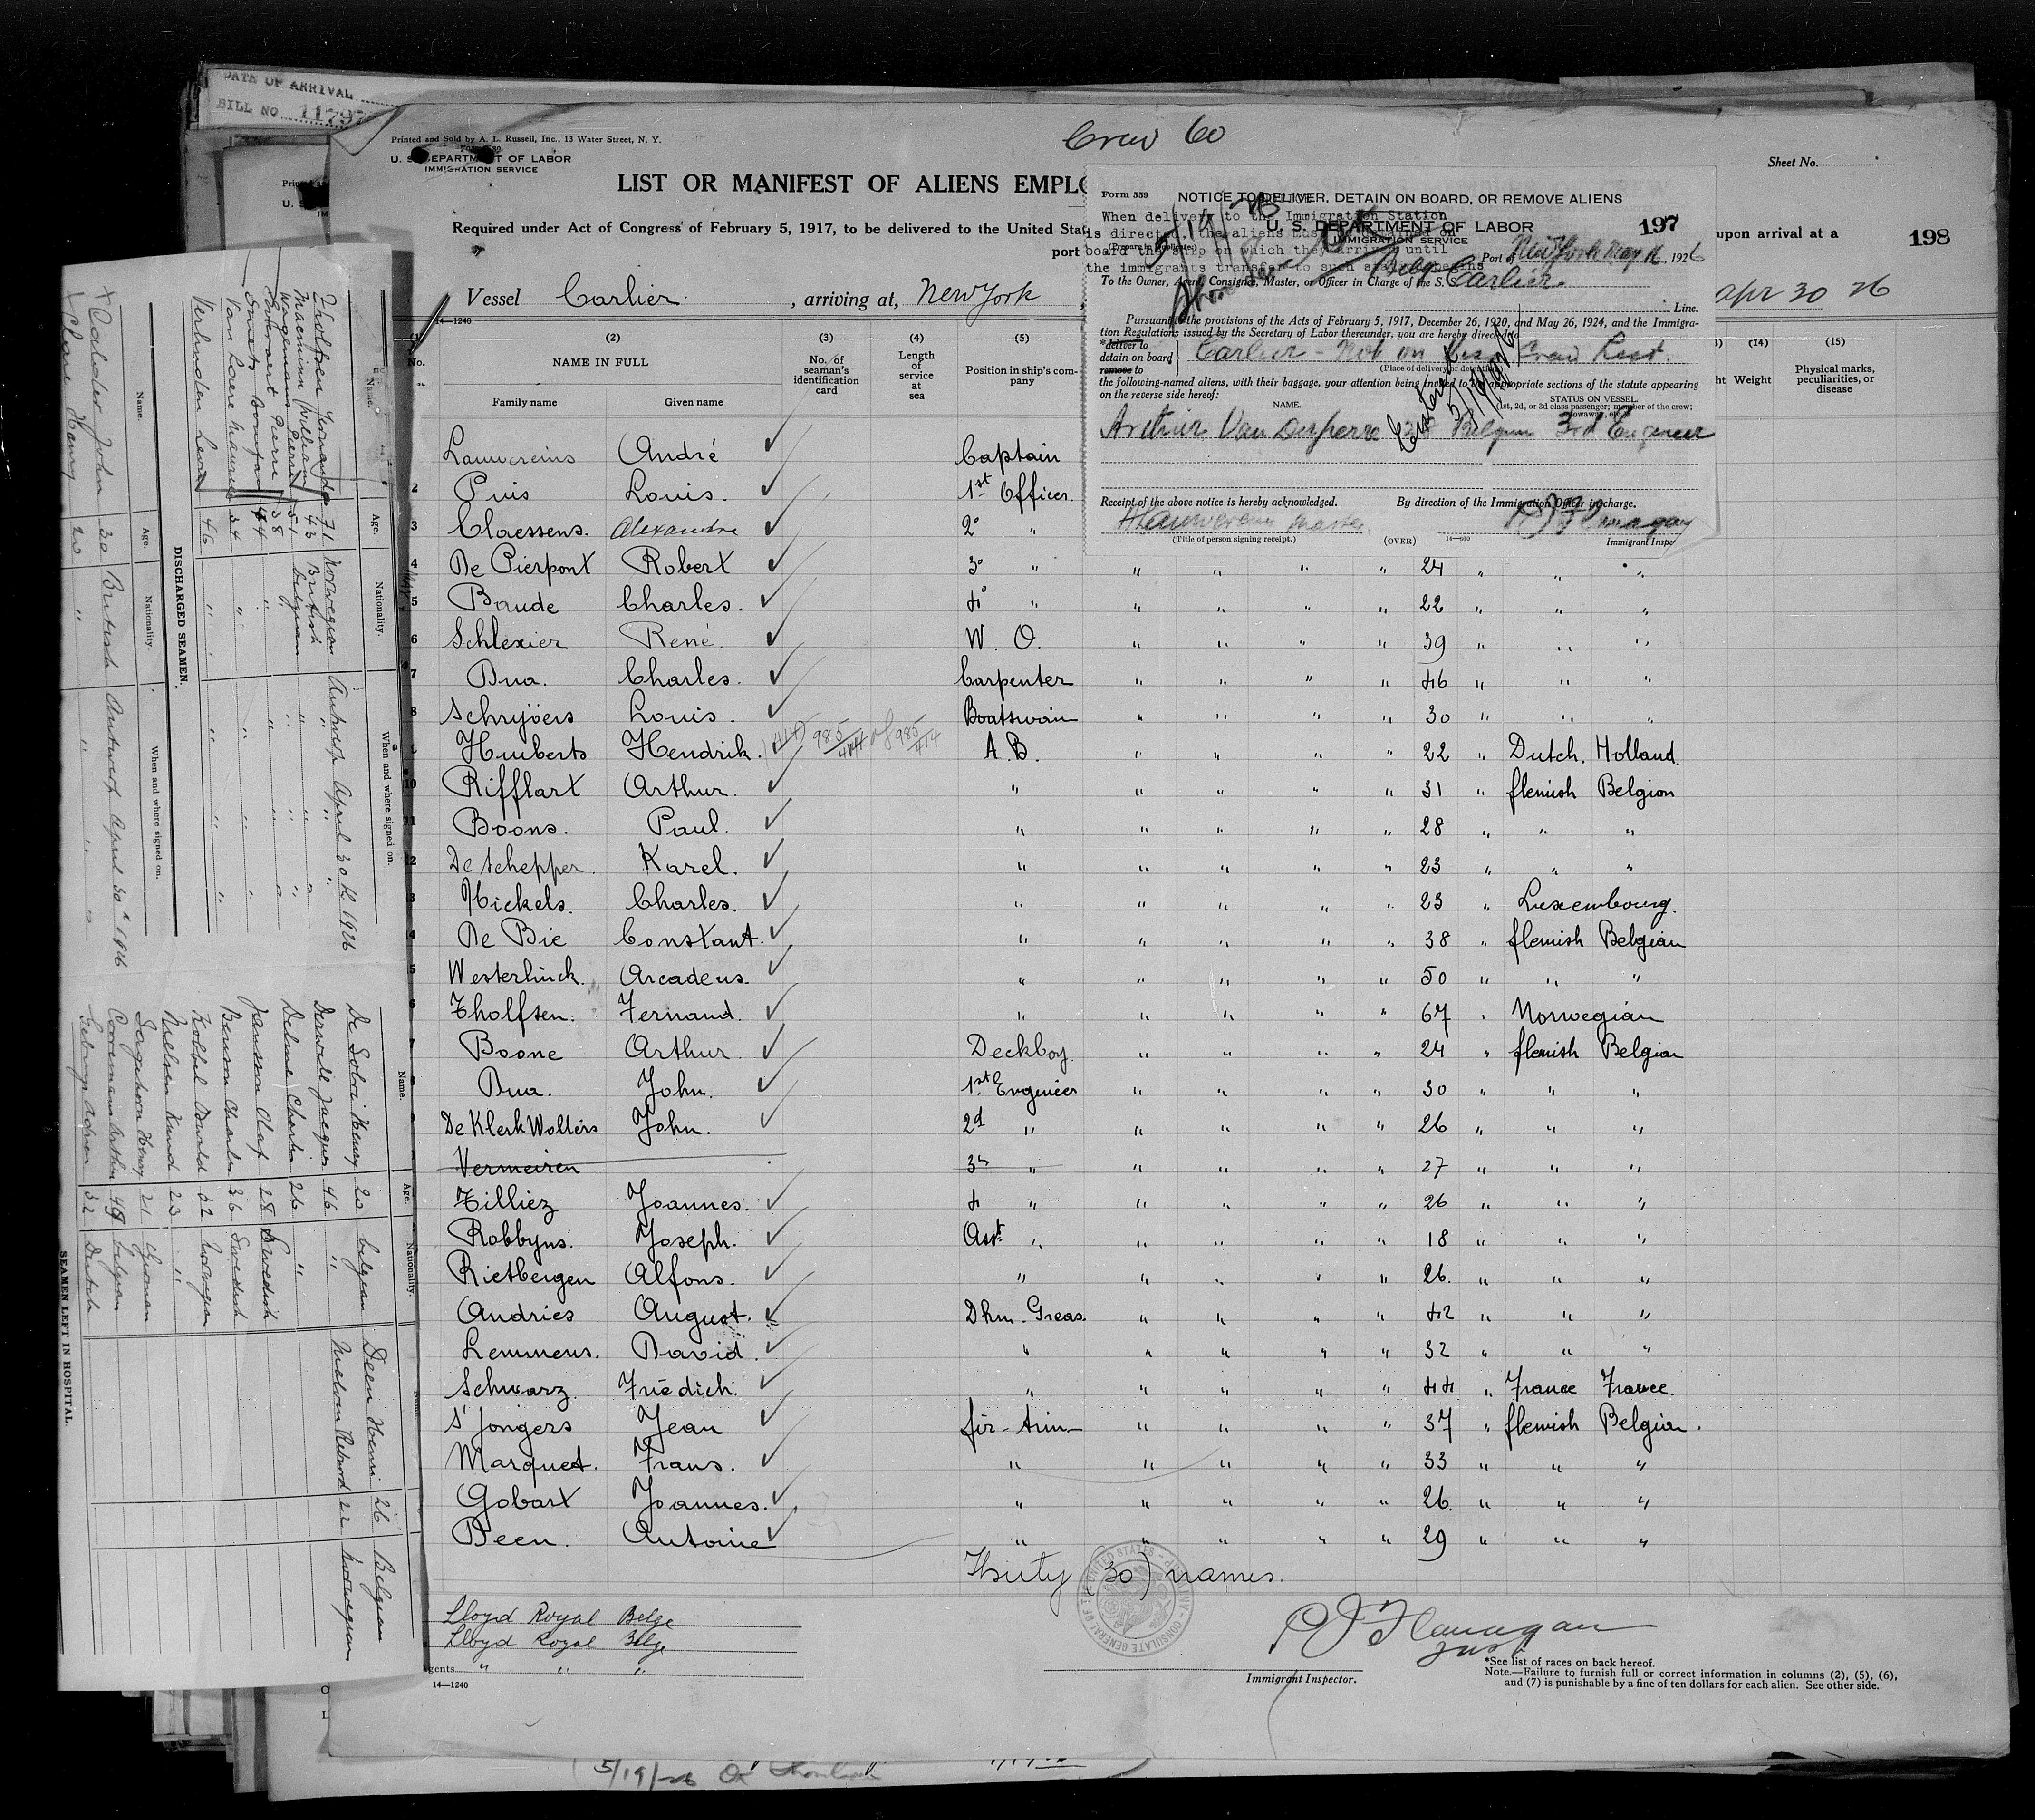 DATE OF ARRIVAL
BILL NO. 11797
Crew 60
Printed and Sold by A. L. Russell, Inc., 13 Water Street, N. Y.
U. S. DEPARTMENT OF LABOR
IMMIGRATION SERVICE
Sheet No.
LIST OR MANIFEST OF ALIENS EMPLO
Required under Act of Congress of February 5, 1917, to be delivered to the United Stat
port
upon arrival at a
198
Vessel Carlier, arriving at, New York
apr 30 26
14—1240
Form 559
NOTICE TO DELIVER, DETAIN ON BOARD, OR REMOVE ALIENS
When delivery to the Immigration Station
is directed the aliens must be
board the ship on which they arrived until
the immigrants transfer to such station begins
U. S. DEPARTMENT OF LABOR
IMMIGRATION SERVICE
197
Port of New York May 16, 1926
To the Owner, Agent, Consignee, Master, or Officer in Charge of the S. S. Carlier.
Line.
Pursuant to the provisions of the Acts of February 5, 1917, December 26, 1920, and May 26, 1924, and the Immigra-
tion Regulations issued by the Secretary of Labor thereunder, you are hereby directed to
*deliver to
detain on board
remove to
Carlier - Not on Crew List.
(Place of delivery or detention)
the following-named aliens, with their baggage, your attention being invited to the appropriate sections of the statute appearing
on the reverse side hereof:
NAME.
STATUS ON VESSEL.
(1st, 2d, or 3d class passenger; member of the crew;
stowaway, etc.)
Arthur Van Desperre 28 Belgium 3rd Engineer
Receipt of the above notice is hereby acknowledged.
By direction of the Immigration Officer in charge.
Master
P J Flanagan
(Title of person signing receipt.)
(OVER)
14—560
Immigrant Inspe
(1) (2) (3) (4) (5) (14) (15)
No. NAME IN FULL
Family name Given name
No. of seaman's identification card
Length of service at sea
Position in ship's com-
pany
Weight
Physical marks, peculiarities, or disease
Lauwereins André Captain
2 Puis Louis. 1st Officer.
3 Claessens. Alexandre 2° "
4 De Pierpont Robert 3° " " " " " 24 " " "
5 Baude Charles. 4° " " " " " 22 " " "
6 Schlexier René. W. O. " " " " 39 " " "
7 Dua. Charles. Carpenter " " " " 46 " " "
8 Schryöers Louis. Boatswain " " " " 30 " " "
Huiberts Hendrik. 985 985 A. B. " " " " 22 " Dutch. Holland.
10 Rifflart Arthur. " " " " " 31 " flemish Belgion
11 Boons. Paul. " " " " " 28 " " "
12 De Schepper. Karel. " " " " " 23 " " "
3 Nickels. Charles. " " " " " 23 " Luxembourg.
4 De Bie Constant. " " " " " 38 " flemish Belgian
5 Westerlinck. Arcadeus. " " " " " 50 " " "
6 Tholfsen. Fernand. " " " " " 67 " Norwegian
7 Boone Arthur. Deckboy. " " " " 24 " flemish Belgian
8 Dua. John. 1st Engineer " " " " 30 " " "
De Klerk Wolters John. 2d " " " " " 26 " " "
Vermeiren 3 " " " " " 27 " " "
Tilliez Joannes. 4 " " " " " 26 " " "
Robbyns. Joseph. Asst. " " " " " 18 " " "
Rietbergen Alfons. " " " " " 26. " " "
Andries August. Dkm. Greas. " " " " 42 " " "
Lemmens. David. " " " " " 32 " " "
Schwarz. Friedich. " " " " " 44 " France France.
S'Jongers Jean fir-trim- " " " " 37 " flemish Belgian.
Marquet. Frans. " " " " " 33 " " "
Gobart Joannes. " " " " " 26. " " "
Been. Antoine " " " " " 29 " " "
Thirty (30) names.
Lloyd Royal Belge
Lloyd Royal Belge
gents " " "
14—1240
P J Flanagan
Insp
Immigrant Inspector.
*See list of races on back hereof.
Note.—Failure to furnish full or correct information in columns (2), (5), (6),
and (7) is punishable by a fine of ten dollars for each alien. See other side.
5/19/26
Name. Age. Nationality. When and where signed on.
Tholfsen Fernande 71 Norwegian Antwerp April 30th 1926
Machinn William 43 British " " "
Wagemans Pierre 51 belgian " " "
Pierre 38 " " "
Smets Bonnefant 44 " " "
Van Loere Maurice 34 " " "
Verlinden Leon 46 " " "
DISCHARGED SEAMEN.
Name. Age. Nationality. When and where signed on.
Caholder John 30 British Antwerp April 30th 1926
Clare Henry 20 " " "
Name. Age. Nationality. Name
De Solvi Henry 20 belgian Deen Henri 26 Belgian
Derwalle Jacques 46 " 22 Norwegian
Delme Charles 26 "
Jansson Olaf 28 Swedish
Benson Charles 36 Swedish
32 Norwegian
Nielsen Knud 23 "
Henry 21 German
Cooremans Arthur 49 belgian
Adrien 32 Dutch
SEAMEN LEFT IN HOSPITAL.